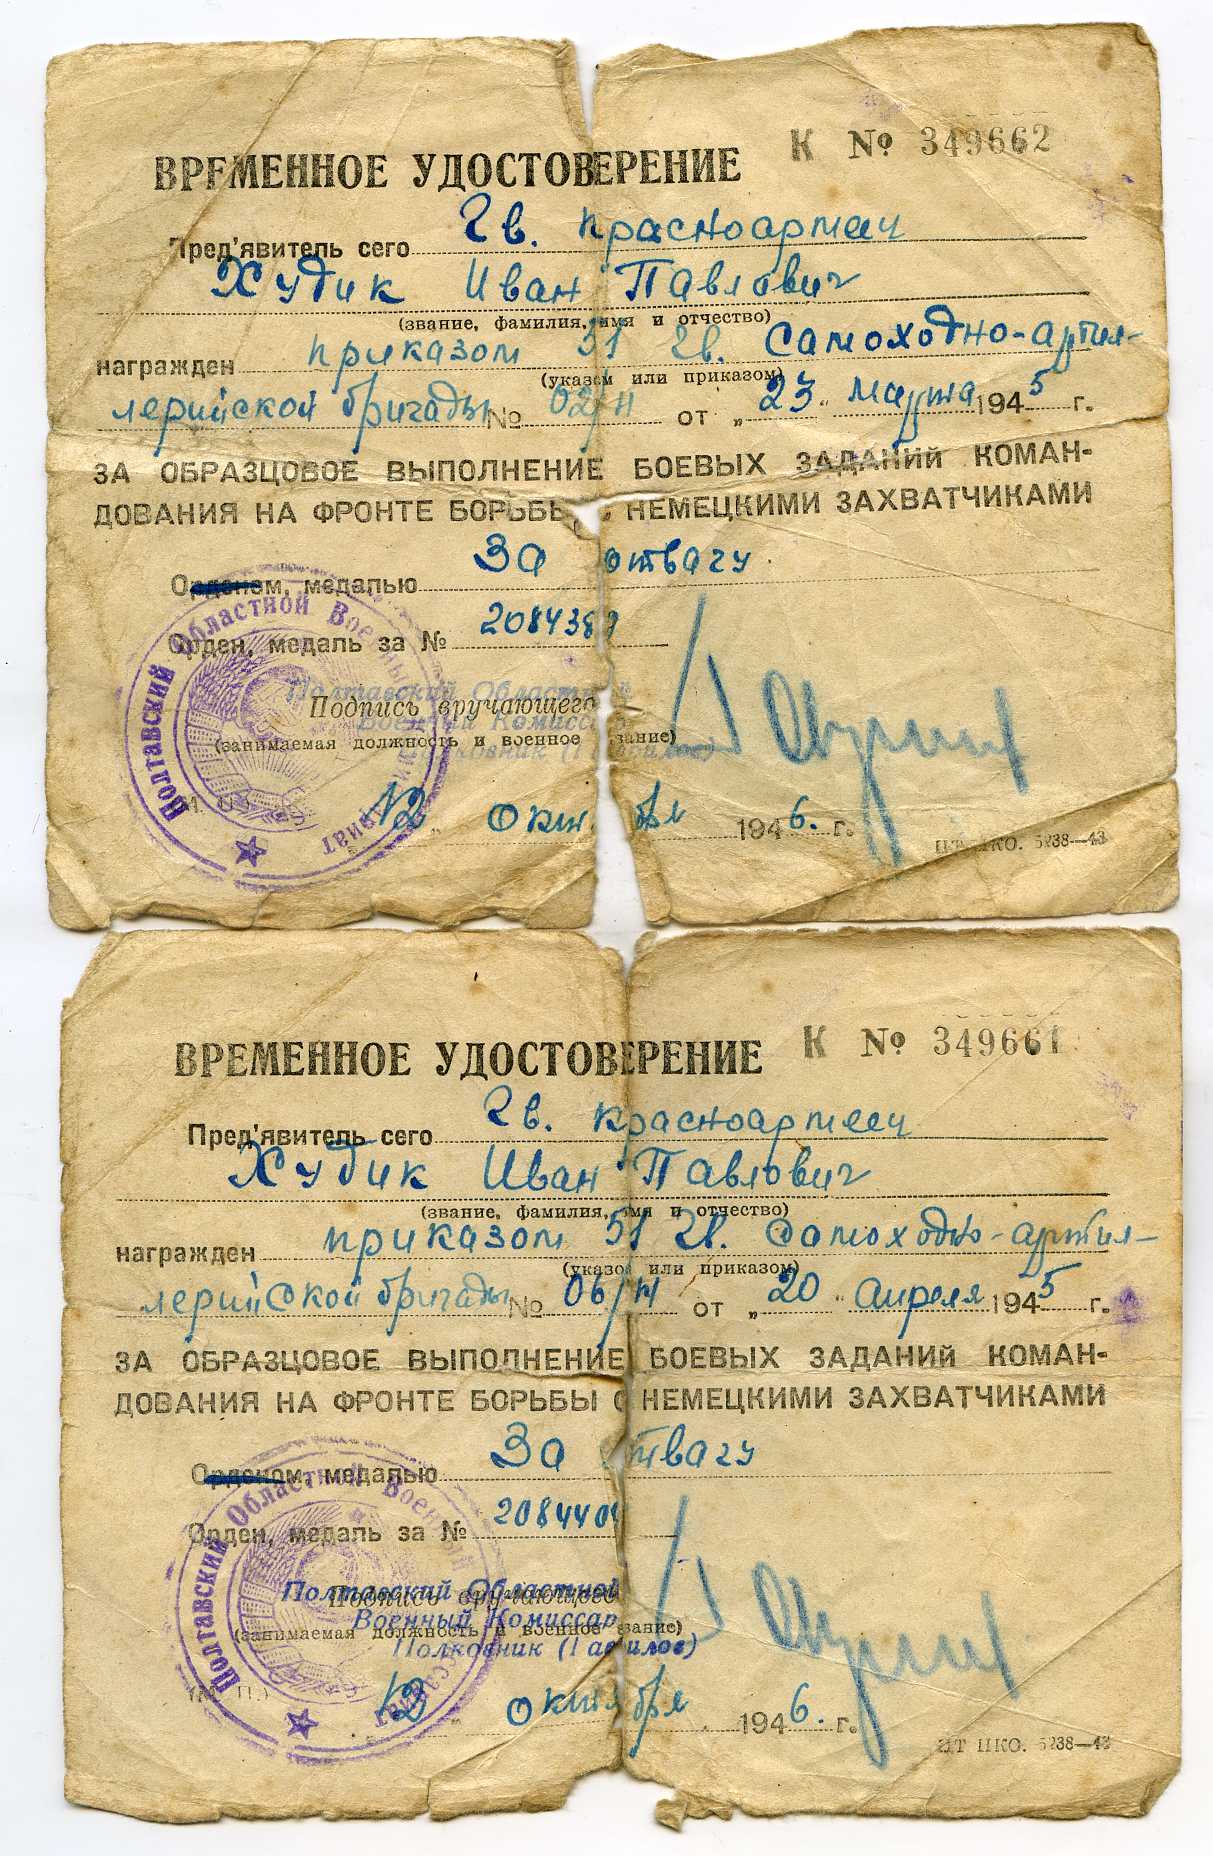 ВРЕМЕННОЕ УДОСТОВЕРЕНИЕ
К № 349662
Пред'явитель сего Гв. красноармеец
Худик Иван Павлович
(звание, фамилия, имя и отчество)
награжден приказом 51 Гв. Самоходно-артил-
(указом или приказом)
лерийской бригады № 02/н от „23" марта 1945 г.
ЗА ОБРАЗЦОВОЕ ВЫПОЛНЕНИЕ БОЕВЫХ ЗАДАНИЙ КОМАН-
ДОВАНИЯ НА ФРОНТЕ БОРЬБЫ С НЕМЕЦКИМИ ЗАХВАТЧИКАМИ
Орденом, медалью За отвагу
Орден, медаль за № 208438
Полтавский Областной
Подпись вручающего
Военный Комиссар
(занимаемая должность и военное звание)
Полковник (Гаврилов)
М. П. 12 октября 1946. г.
Полтавский Областной Военный Комиссариат
5238—43
ВРЕМЕННОЕ УДОСТОВЕРЕНИЕ
К № 349661
Пред'явитель сего Гв. красноармеец
Худик Иван Павлович
(звание, фамилия, имя и отчество)
награжден приказом 51 Гв. Самоходно-артил-
(указом или приказом)
лерийской бригады № 06/н от „20" апреля 1945 г.
ЗА ОБРАЗЦОВОЕ ВЫПОЛНЕНИЕ БОЕВЫХ ЗАДАНИЙ КОМАН-
ДОВАНИЯ НА ФРОНТЕ БОРЬБЫ С НЕМЕЦКИМИ ЗАХВАТЧИКАМИ
Орденом, медалью За отвагу
Орден, медаль за № 208440
Полтавский Областной
Подпись вручающего
Военный Комиссар
(занимаемая должность и военное звание)
Полковник (Гаврилов)
(М. П.) 12 октября 1946. г.
Полтавский Областной Военный Комиссариат
5238—43